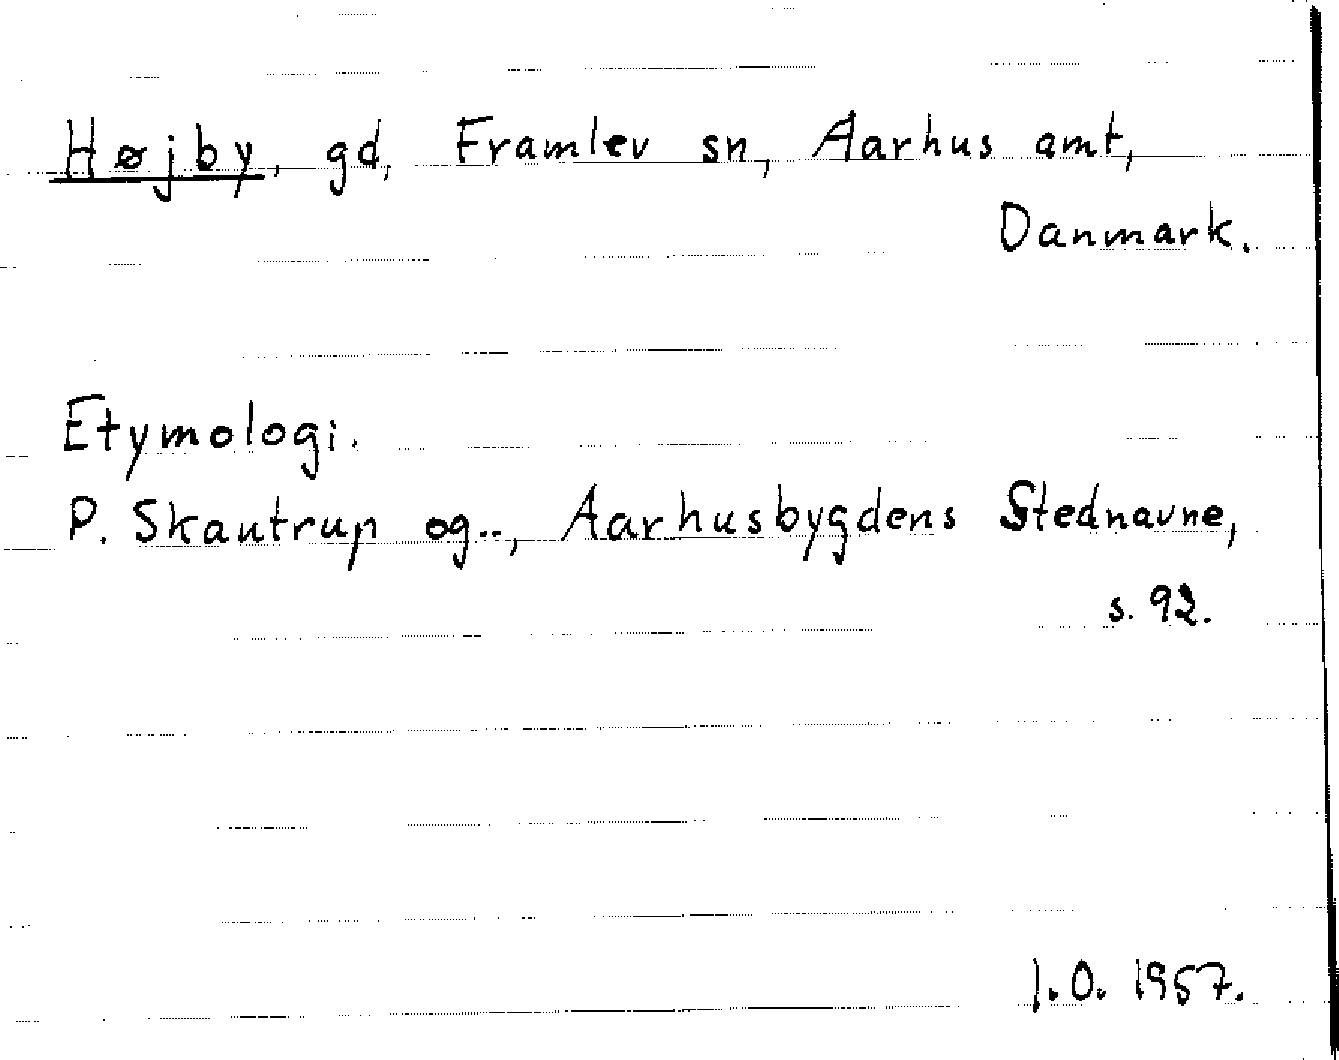 Højby, gd, Framlev sn, Aarhus amt,
Danmark.
Etymologi.
P. Skautrup og.., Aarhusbygdens Stednavne,
s. 92.
J.O. 1957.